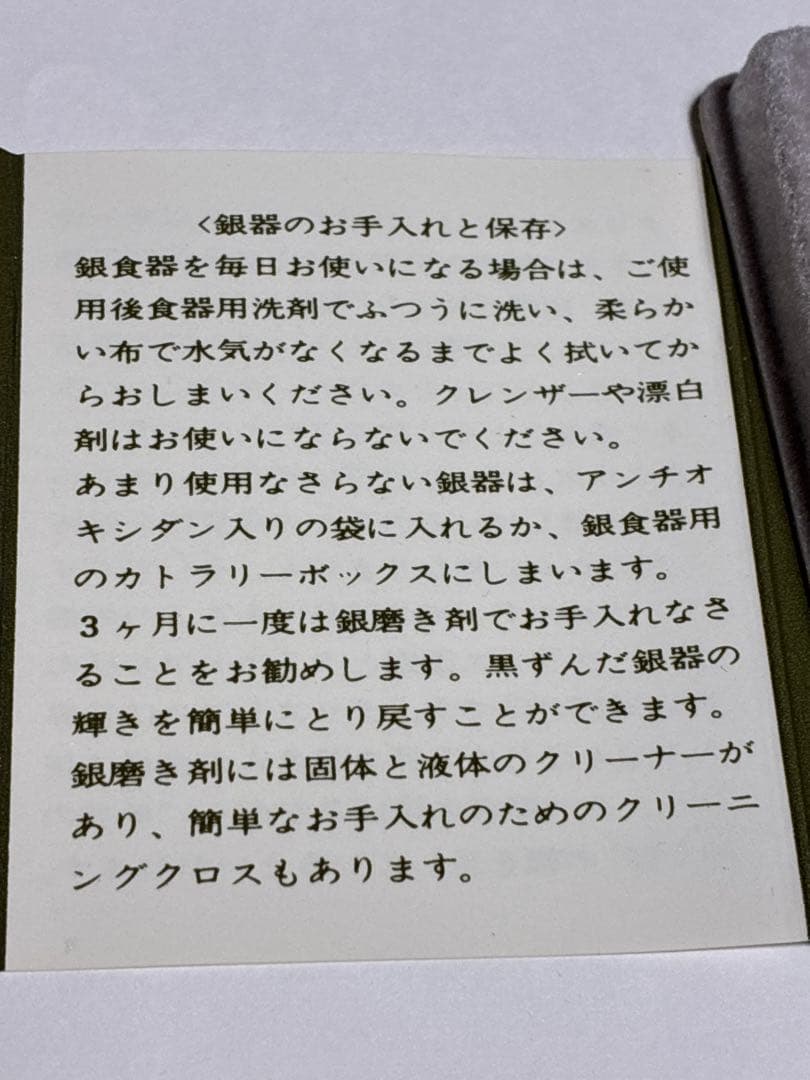 <銀器のお手入れと保存>
銀食器を毎日お使いになる場合は、ご使
用後食器用洗剤でふつうに洗い、柔らか
い布で水気がなくなるまでよく拭いてか
らおしまいください。クレンザーや漂白
剤はお使いにならないでください。
あまり使用なさらない銀器は、アンチオ
キシダン入りの袋に入れるか、銀食器用
のカトラリーボックスにしまいます。
3ヶ月に一度は銀磨き剤でお手入れなさ
ることをお勧めします。黒ずんだ銀器の
輝きを簡単にとり戻すことができます。
銀磨き剤には固体と液体のクリーナーが
あり、簡単なお手入れのためのクリーニ
ングクロスもあります。